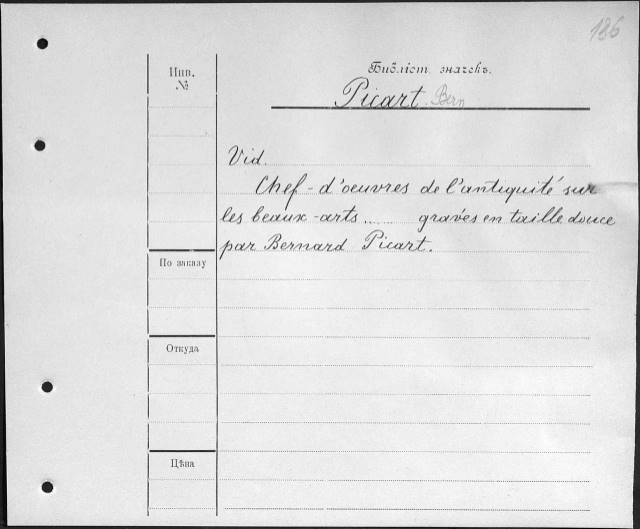 186
Инв.
№
Библіот. значекъ.
Picart. Bern
Vid.
Chef-d'oeuvres de l'antiquité sur
les beaux-arts ...... gravés en taille douce
par Bernard Picart.
По заказу
Откуда
Цѣна